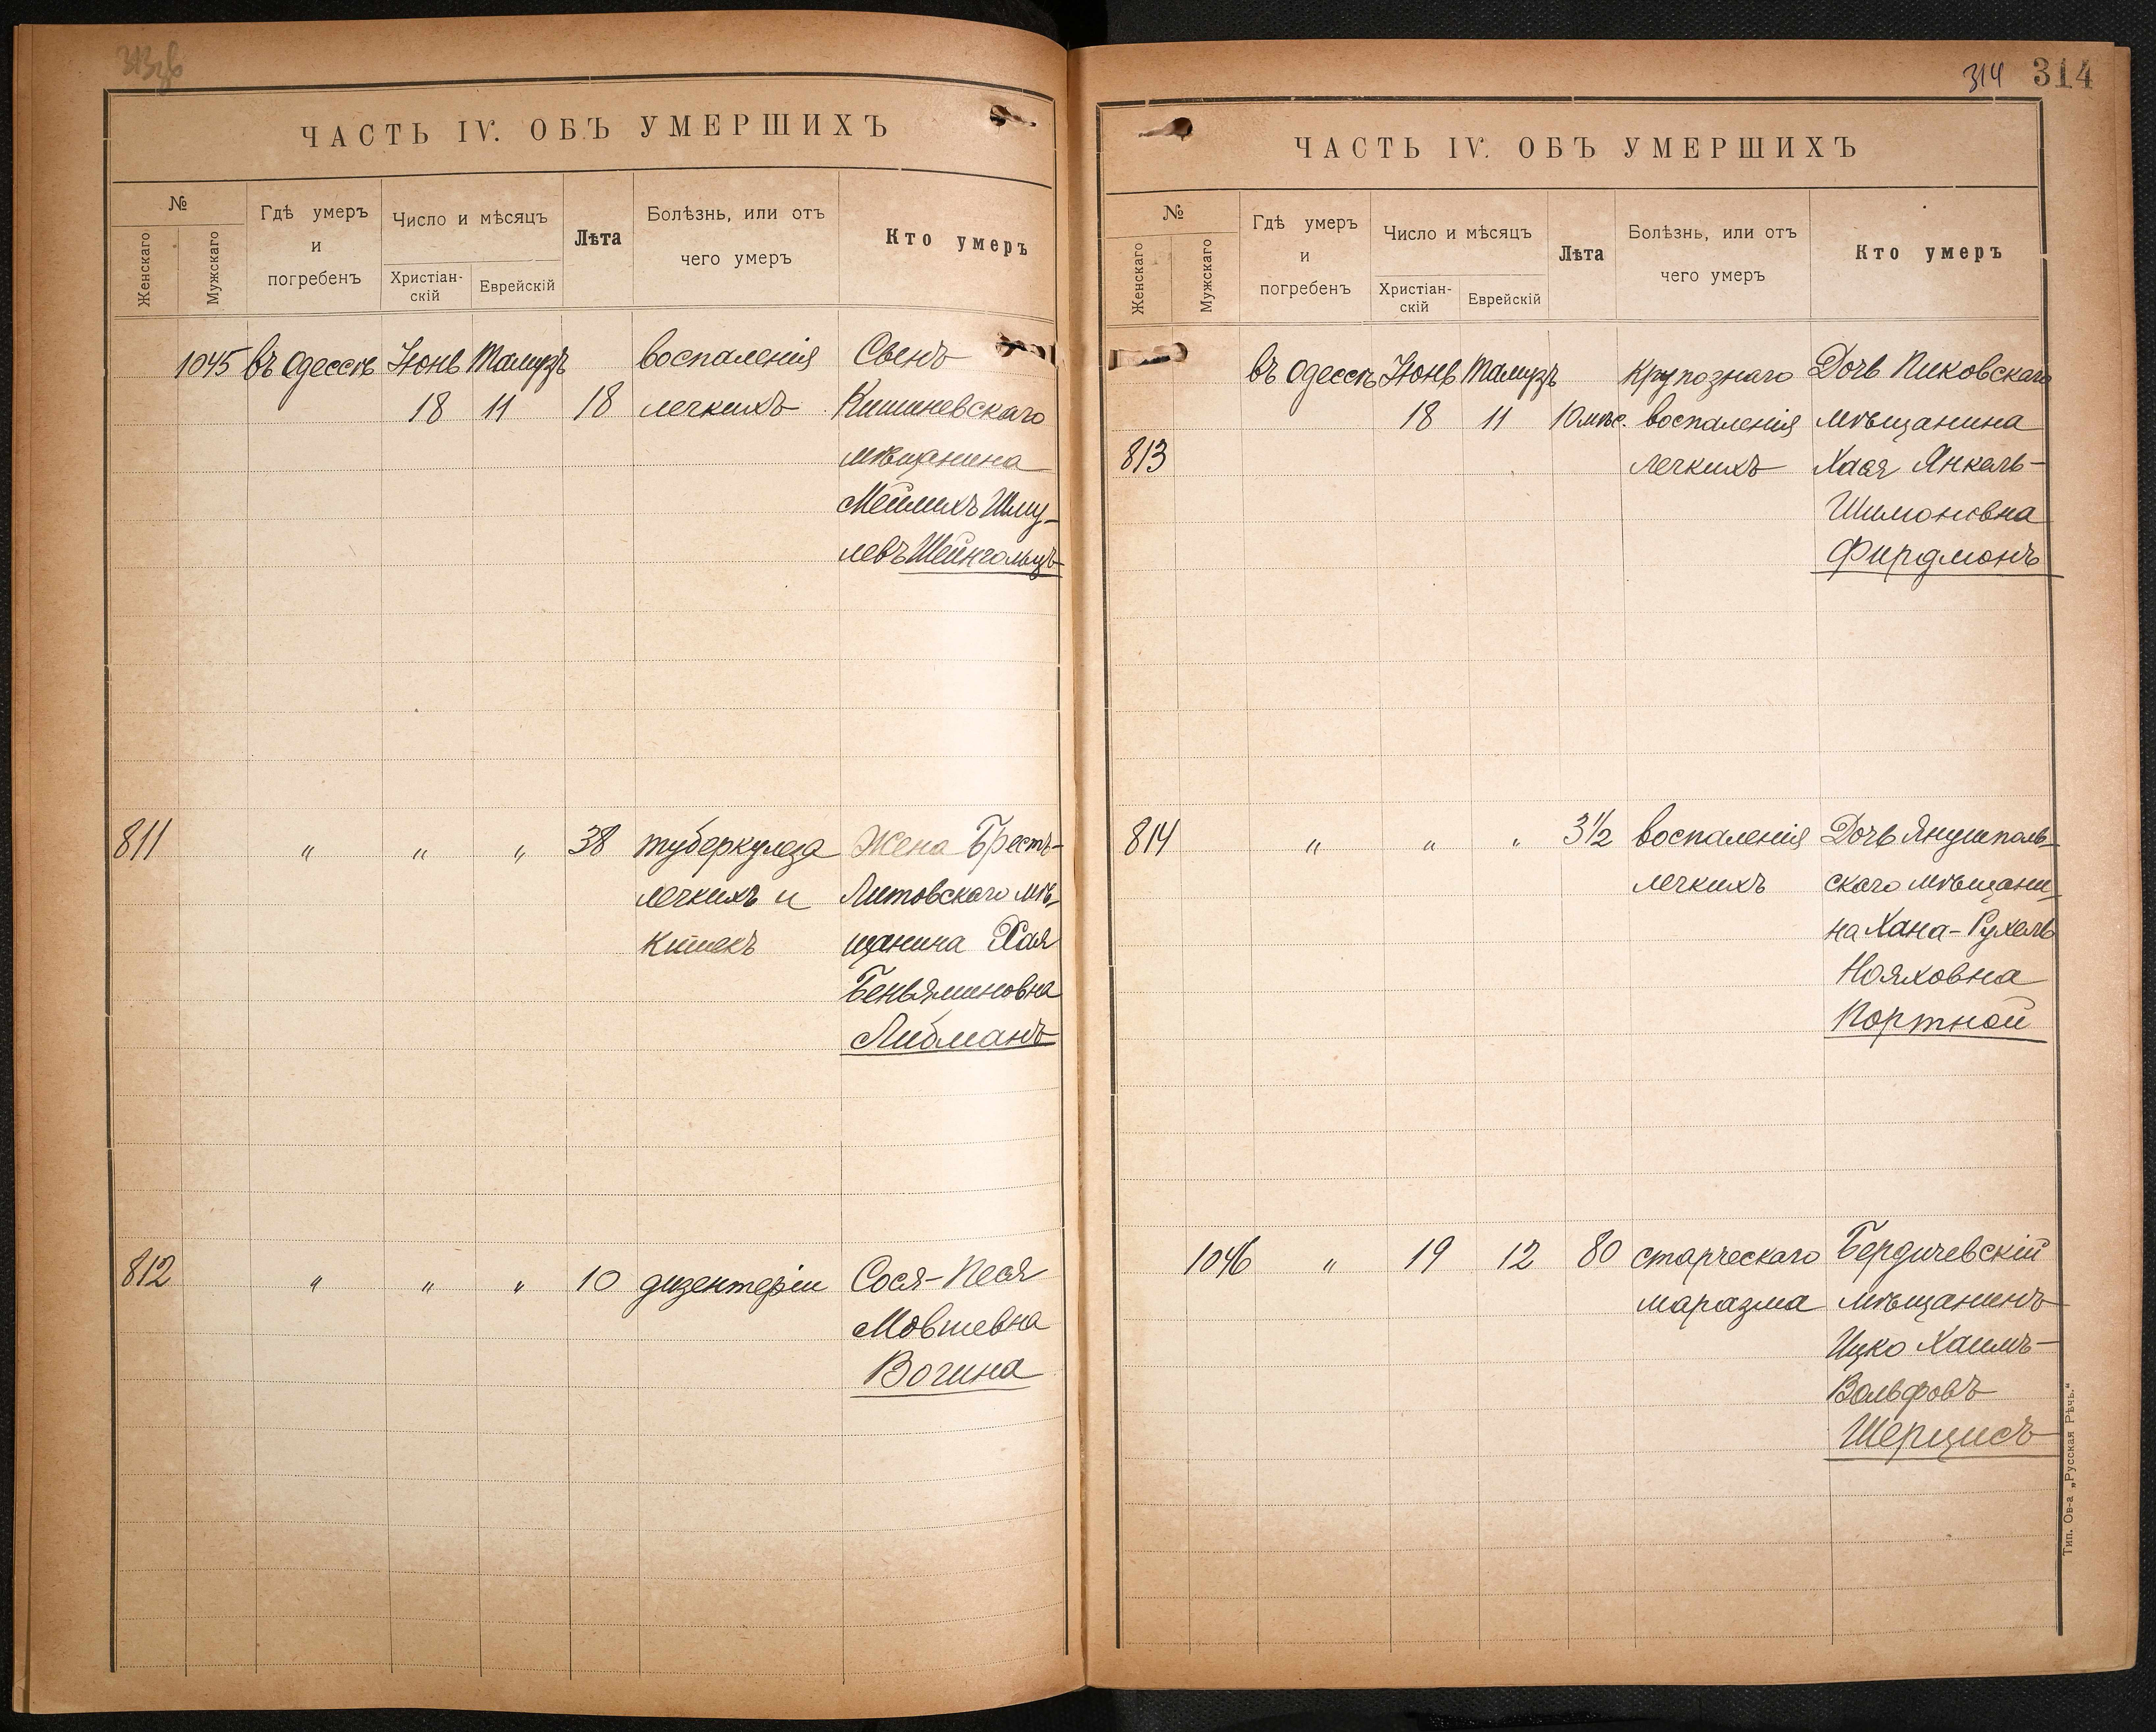 ЧАСТЬ IV. ОБЪ УМЕРШИХЪ
№
Женскаго
Мужскаго
Гдѣ умеръ
и
погребенъ
Число и мѣсяцъ
Христіан-
скій
Еврейскій
Лѣта
Болѣзнь, или отъ
чего умеръ
Кто умеръ
1045 въ Одессѣ Іюнь Тамузъ воспаленія
18 11 18 легкихъ Кишиневскаго
мѣщанина
Мейлихъ Шму-
левъ Шейнгольцъ
811 " " " 38 туберкулеза Жена Брестъ-
легкихъ и Литовскаго мѣ-
кишекъ щанина Хая
Беньяминовна
Либманъ
812 " " " 10 дизентеріи Сося-Песя
Мовшевна
Вогина
314 314
ЧАСТЬ IV. ОБЪ УМЕРШИХЪ
№
Женскаго
Мужскаго
Гдѣ умеръ
и
погребенъ
Число и мѣсяцъ
Христіан-
скій
Еврейскій
Лѣта
Болѣзнь, или отъ
чего умеръ
Кто умеръ
въ Одессѣ Іюнь Тамузъ Крупознаго Дочь Пиковскаго
18 11 10 мѣс. воспаленія мѣщанина
813 легкихъ Хася Янкель-
Шимоновна
Фирдманъ
814 " " " 3 1/2 воспаленія Дочь Янушполь-
легкихъ скаго мѣщани-
на Хана-Рухель
Нояховна
Портной
1046 " 19 12 80 старческаго Бердичевскій
маразма мѣщанинъ
Ицко Хаимъ-
Вольфовъ
Шерцисъ
Тип. Ов-а „Русская Рѣчь.“